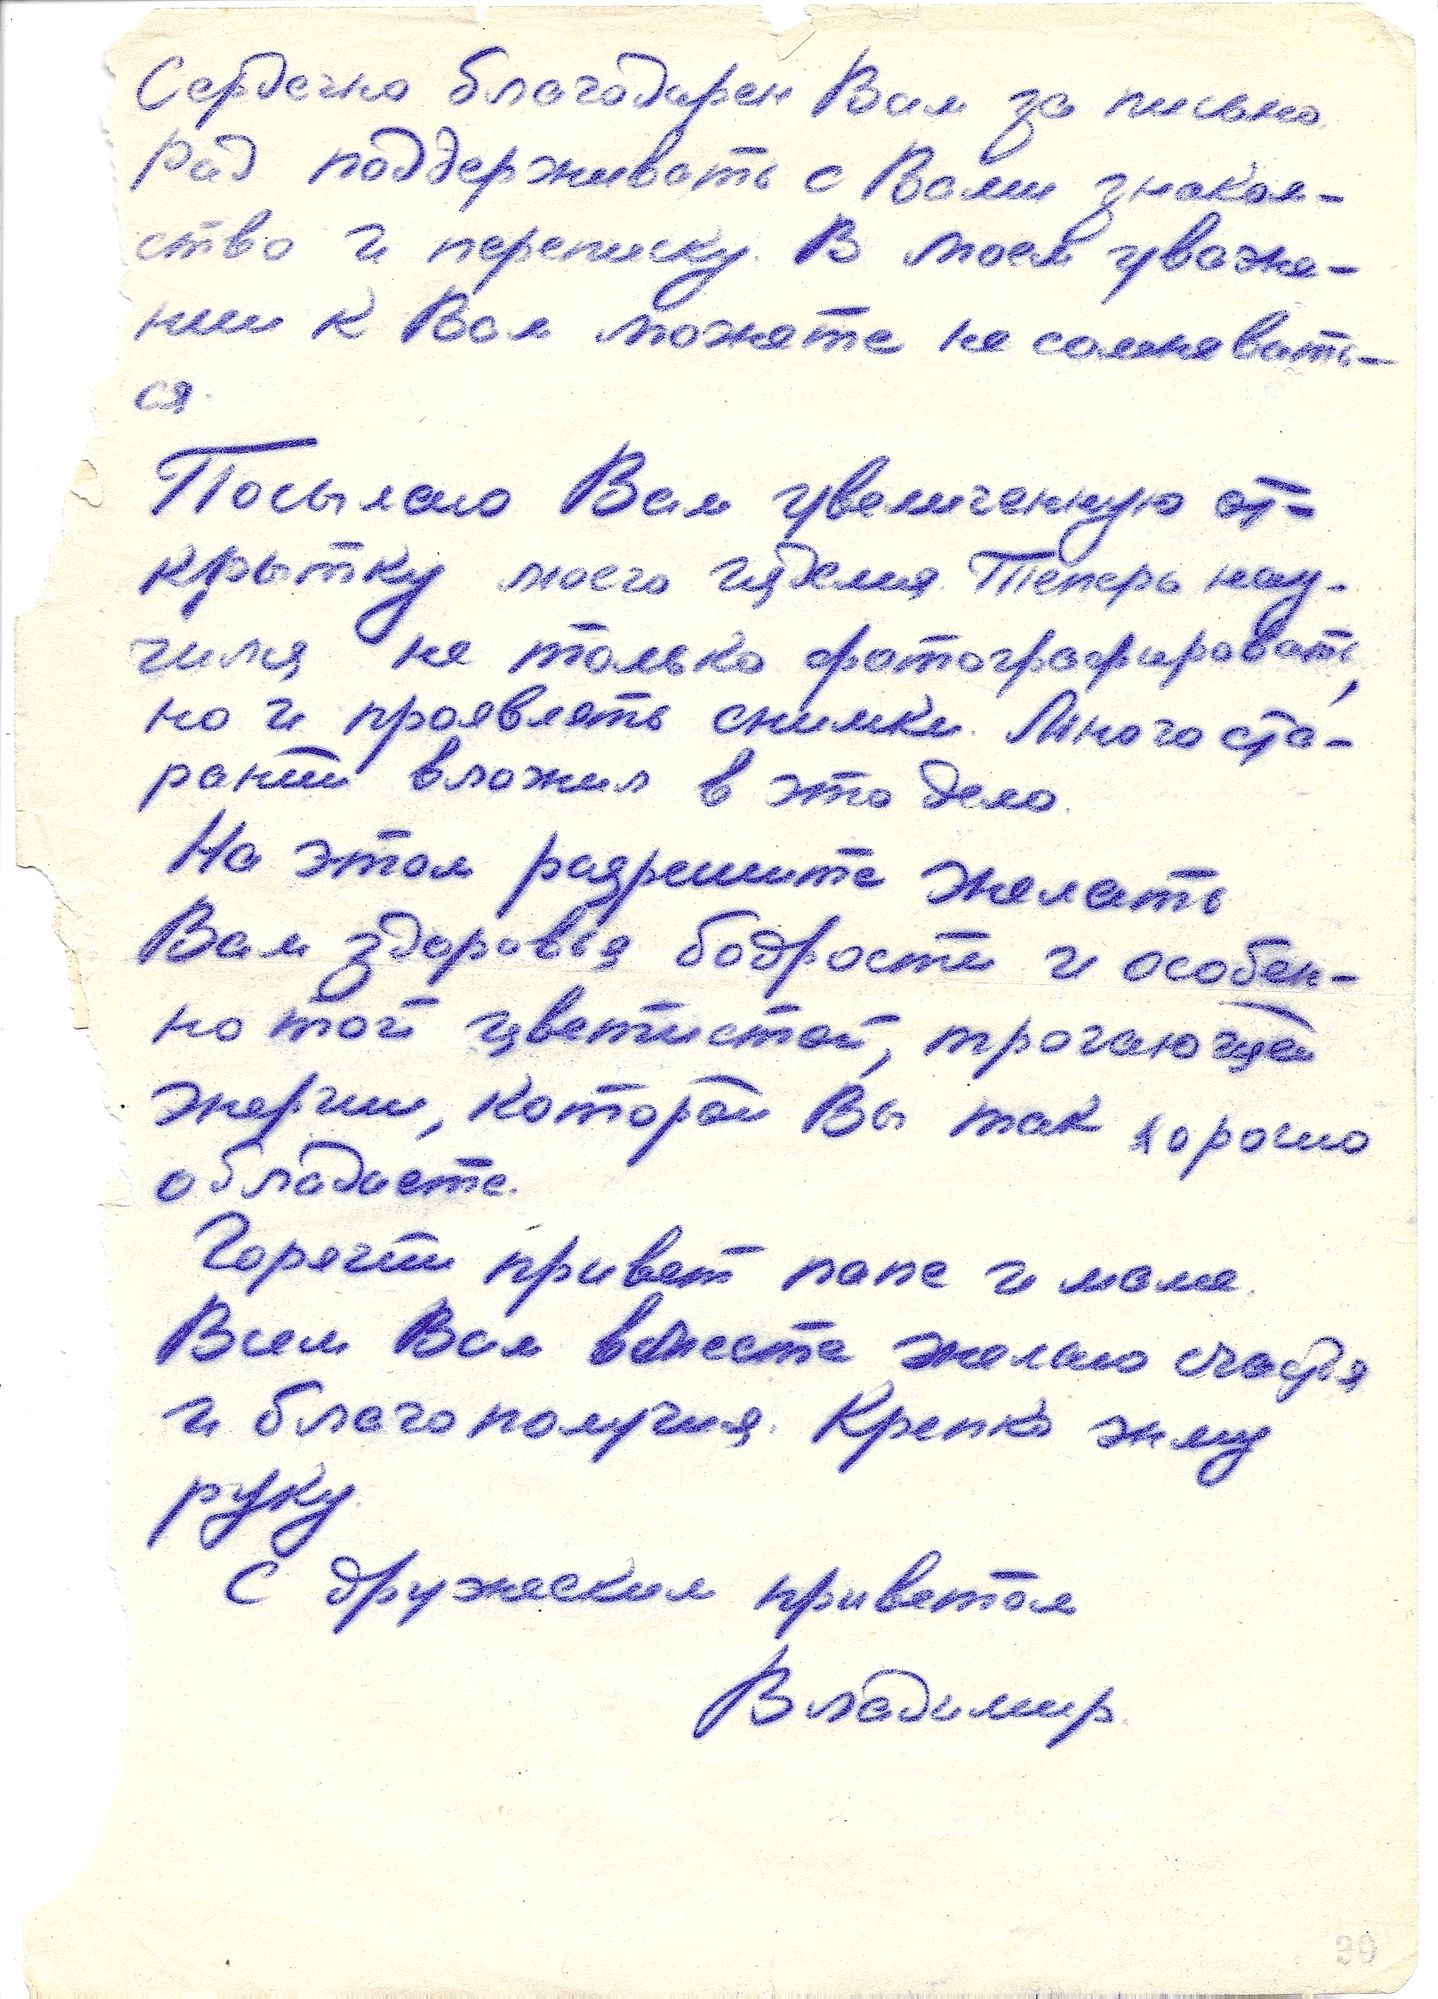 Сердечно благодарен Вам за письмо.
Рад поддерживать с Вами знаком-
ство и переписку. В моем уваже-
нии к Вам можете не сомневать-
ся.
Посылаю Вам увеличенную от-
крытку моего изделия. Теперь нау-
чился не только фотографировать,
но и проявлять снимки. Много ста-
раний вложил в это дело.
На этом разрешите желать
Вам здоровья бодрости и особен-
но той цветистой, трогающей
энергии, которой Вы так хорошо
обладаете.
Горячий привет папе и маме.
Всем Вам вместе желаю счастья
и благополучия. Крепко жму
руку.
С дружеским приветом
Владимир.
39